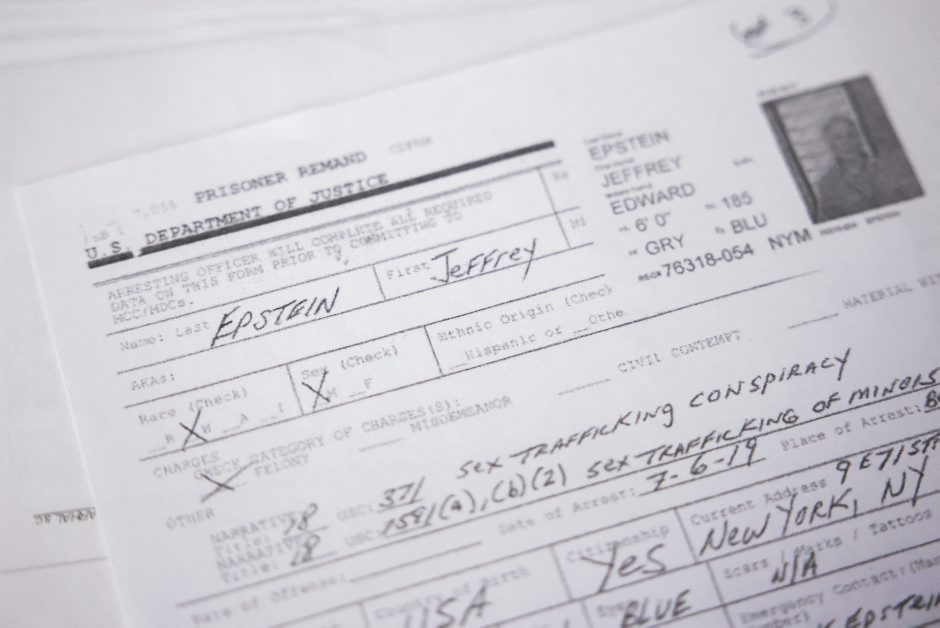 PRISONER REMAND
U.S. DEPARTMENT OF JUSTICE
ARRESTING OFFICER WILL COMPLETE ALL REQUIRED
DATA ON THIS FORM PRIOR TO COMMITTING TO
MCC/MDCs.
EPSTEIN
JEFFREY
EDWARD
6'0" 185
GRY BLU
76318-054 NYM
Name: Last EPSTEIN First Jeffrey MI
AKAs:
Race (Check)
B X W A I
Sex (Check)
X M F
Ethnic Origin (Check
Hispanic or Othe
CHARGES
CHECK CATEGORY OF CHARGES(S):
X FELONY MISDEMEANOR CIVIL CONTEMPT MATERIAL WIT
OTHER
SEX TRAFFICKING CONSPIRACY
NARRATIVE
Title: 18 USC: 371 SEX TRAFFICKING OF MINORS
NARRATIVE
Title: 18 USC: 1591(a),(b)(2)
Date of Offense: Date of Arrest: 7-6-19 Place of Arrest:
Country of Birth
USA
Citizenship
Yes
Current Address 9 E 71 ST
NEW YORK, NY
BLUE
Scars / Marks / Tattoos
N/A
Emergency Contact:
EPSTEIN